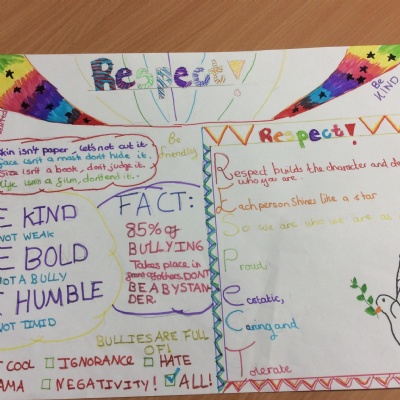 Respect!
Be
KIND
skin isn't paper, let's not cut it.
face isn't a mask don't hide it.
Size isn't a book, don't judge it.
Life isn't a film, don't end it.
Be
friendly
E KIND
NOT WEAK
E BOLD
NOT A BULLY
E HUMBLE
NOT TIMID
FACT:
85% of
BULLYING
Takes place in
front of others DONT
BE A BYSTAN-
DER.
BULLIES ARE FULL
OF!
T COOL IGNORANCE HATE
AMA NEGATIVITY! ALL!
Respect!
Respect builds the character and de
who you are
Each person shines like a star
So we are who we are as
Proud,
ecstatic,
Caring and
Tolerate